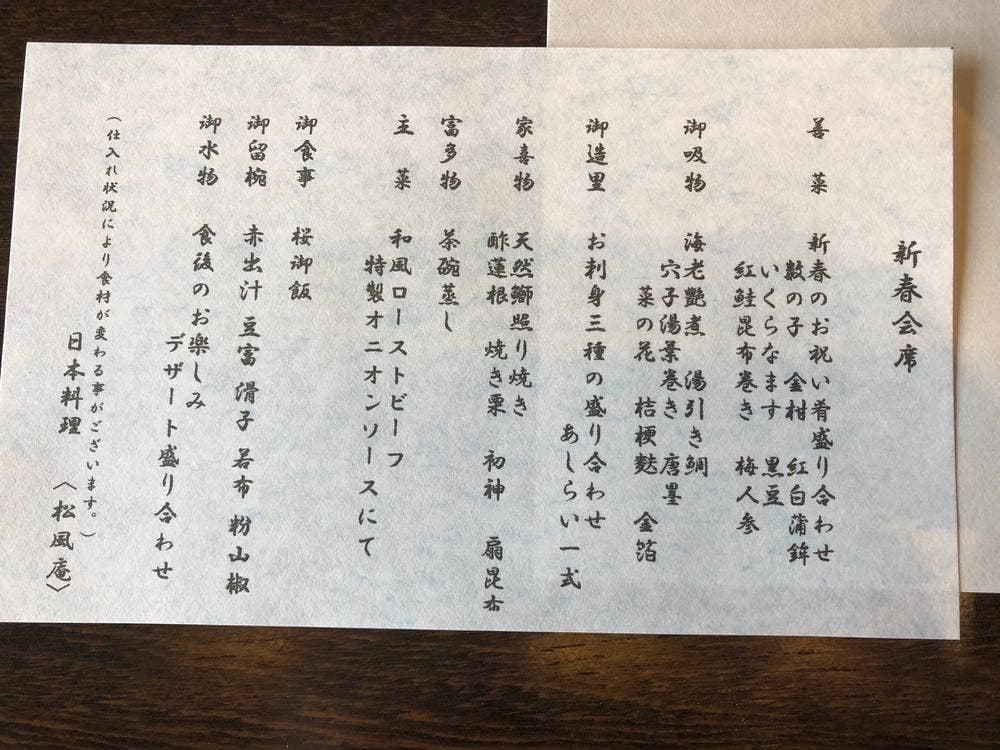 新春会席
善 菜 新春のお祝い肴盛り合わせ
数の子 金柑 紅白蒲鉾
いくらなます 黒豆
紅鮭昆布巻き 梅人参
御吸物 海老艶煮 湯引き鯛
穴子湯葉巻き 唐墨
菜の花 桔梗麩 金箔
御造里 お刺身三種の盛り合わせ
あしらい一式
家喜物 天然鰤照り焼き
酢蓮根 焼き栗 初神 扇昆布
富多物 茶碗蒸し
主 菜 和風ローストビーフ
特製オニオンソースにて
御食事 桜御飯
御留椀 赤出汁 豆富 滑子 若布 粉山椒
御水物 食後のお楽しみ
デザート盛り合わせ
(仕入れ状況により食材が変わる事がございます。)
日本料理 〈松風庵〉